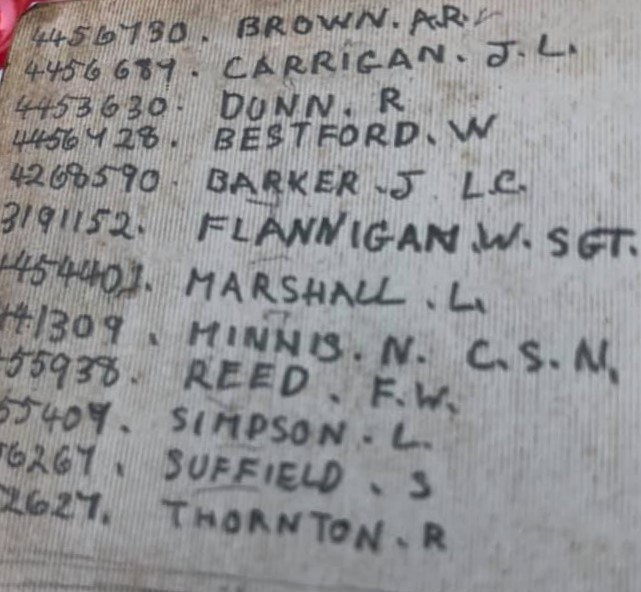 4456730. BROWN. A.R.
4456689. CARRIGAN. J. L.
4453630. DUNN. R
4456428. BESTFORD. W
4268590. BARKER. J L.C.
3191152. FLANNIGAN. W. SGT.
454401. MARSHALL. L.
41309. MINNIS. N. C.S.M.
55938. REED. F.W.
55409. SIMPSON. L.
6267. SUFFIELD. S
2627. THORNTON. R